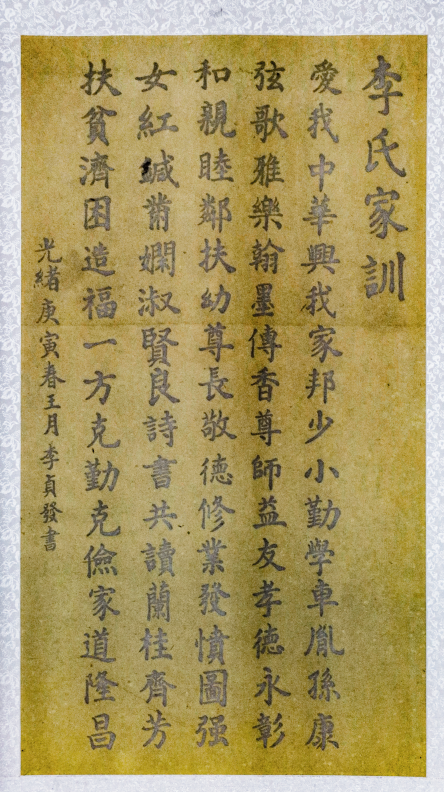 李氏家訓
愛我中華興我家邦少小勤學車胤孫康
弦歌雅樂翰墨傳香尊師益友孝德永彰
和親睦鄰扶幼尊長敬德修業發憤圖强
女紅緘黹嫻淑賢良詩書共讀蘭桂齊芳
扶貧濟困造福一方克勤克儉家道隆昌
光緒庚寅春王月李貞發書